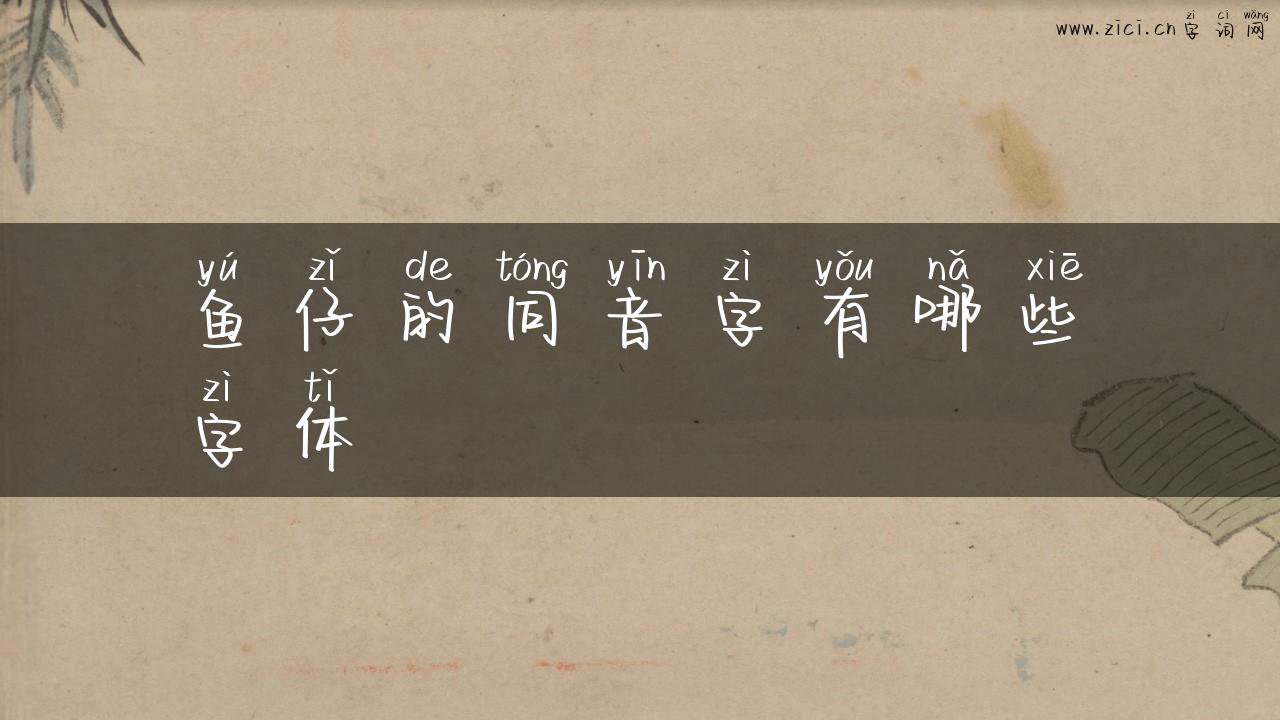 zì cí wǎng
www.zici.cn 字词网
yú zǐ de tóng yīn zì yǒu nǎ xiē
鱼仔的同音字有哪些
zì tǐ
字体